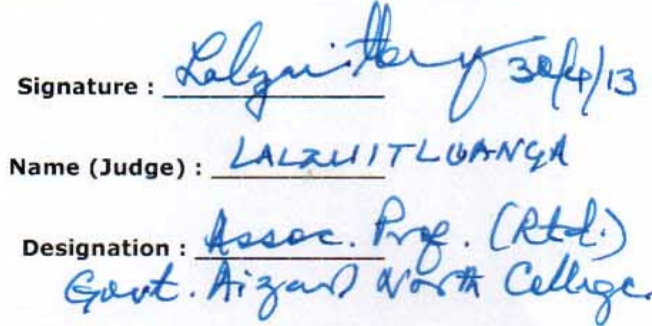 Signature : Lalzuitluanga 30/4/13
Name (Judge) : LALZUITLUANGA
Designation : Assoc. Prof. (Rtd.)
Govt. Aizawl North College.